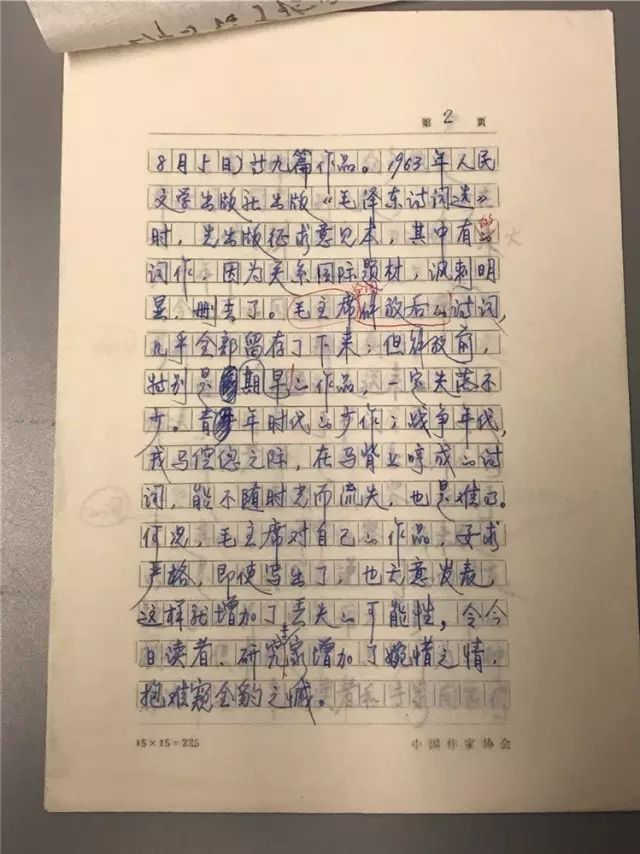 第 2 页
8月5日)廿九篇作品。1963年人民
文学出版社出版《毛泽东诗词选》
时，先出版征求意见本，其中有的
词作，因为关系国际题材，讽刺明
显，删去了。毛主席解放后的诗词，
几乎全部留存了下来；但解放前，
特别是期早的作品，一定失落不
少。青年时代的少作；战争年代，
戎马倥偬之际，在马背上哼成的诗
词，能不随时光而流失，也是难的。
何况，毛主席对自己的作品，要求
严格，即使写出了，也无意发表，
这样就增加了丢失的可能性，令今
日读者、研究家增加了惋惜之情，
抱难窥全豹之憾。
15×15=225
中国作家协会